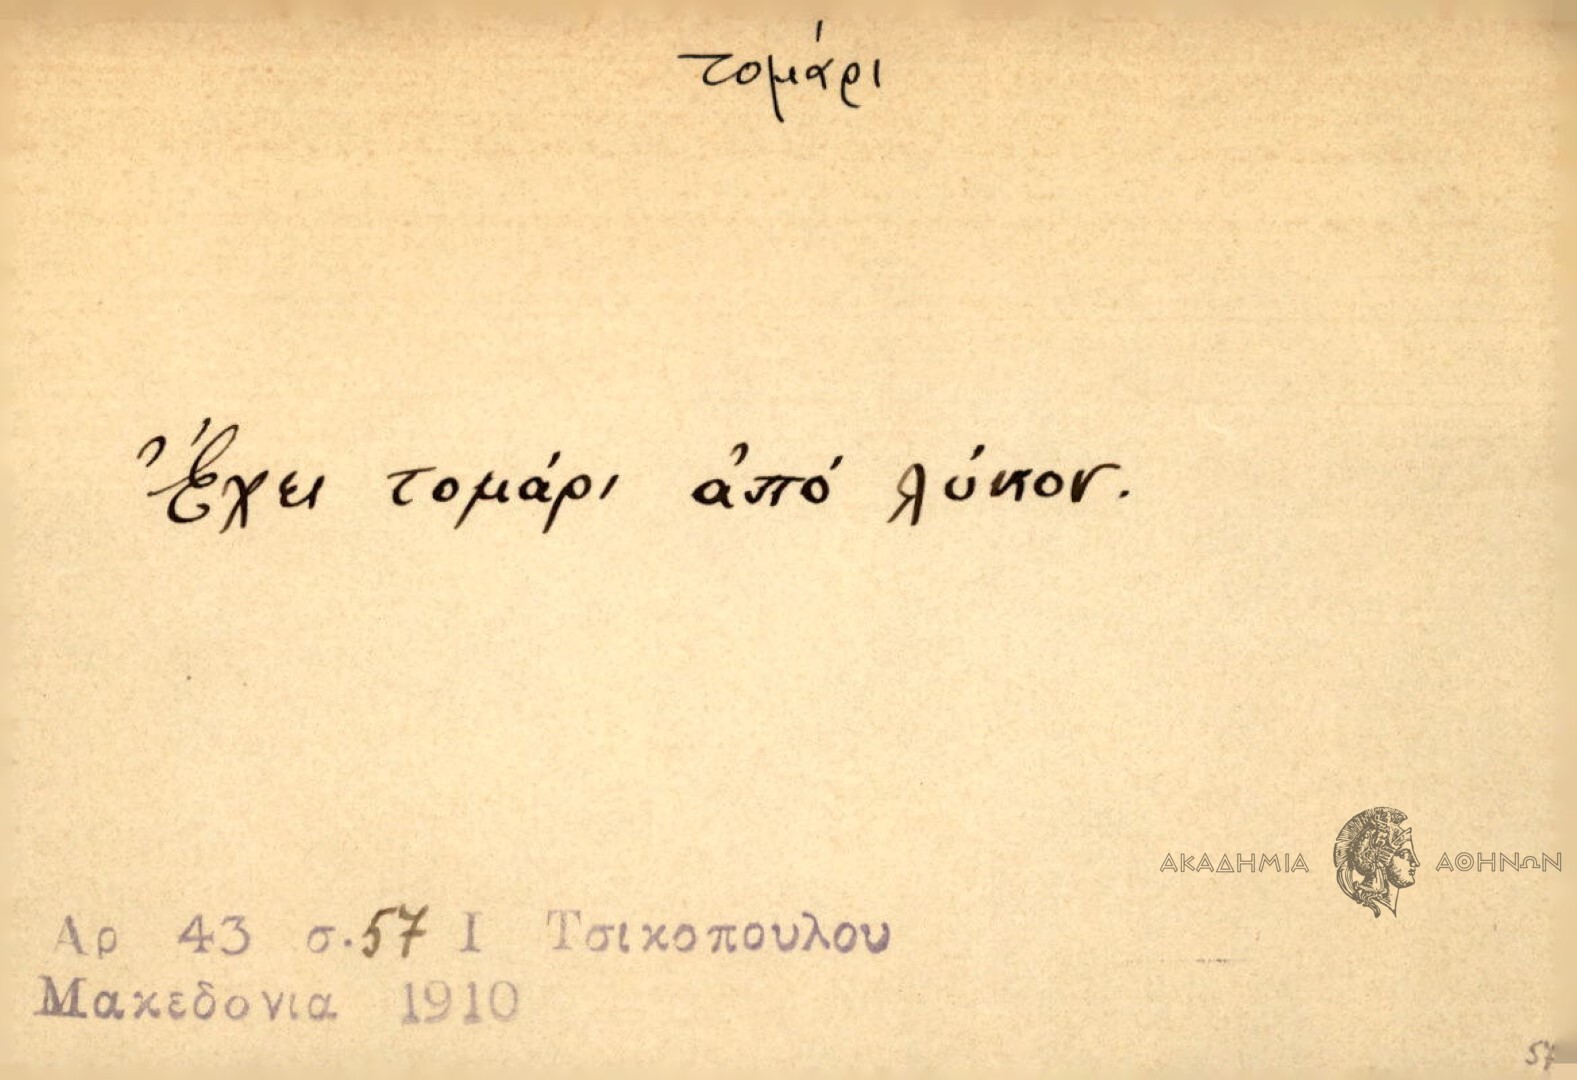 τομάρι
Ἔχει τομάρι ἀπό λύκον.
ΑΚΑΔΗΜΙΑ ΑΘΗΝΩΝ
Αρ 43 σ.57 Ι Τσικοπουλου
Μακεδονια 1910
57